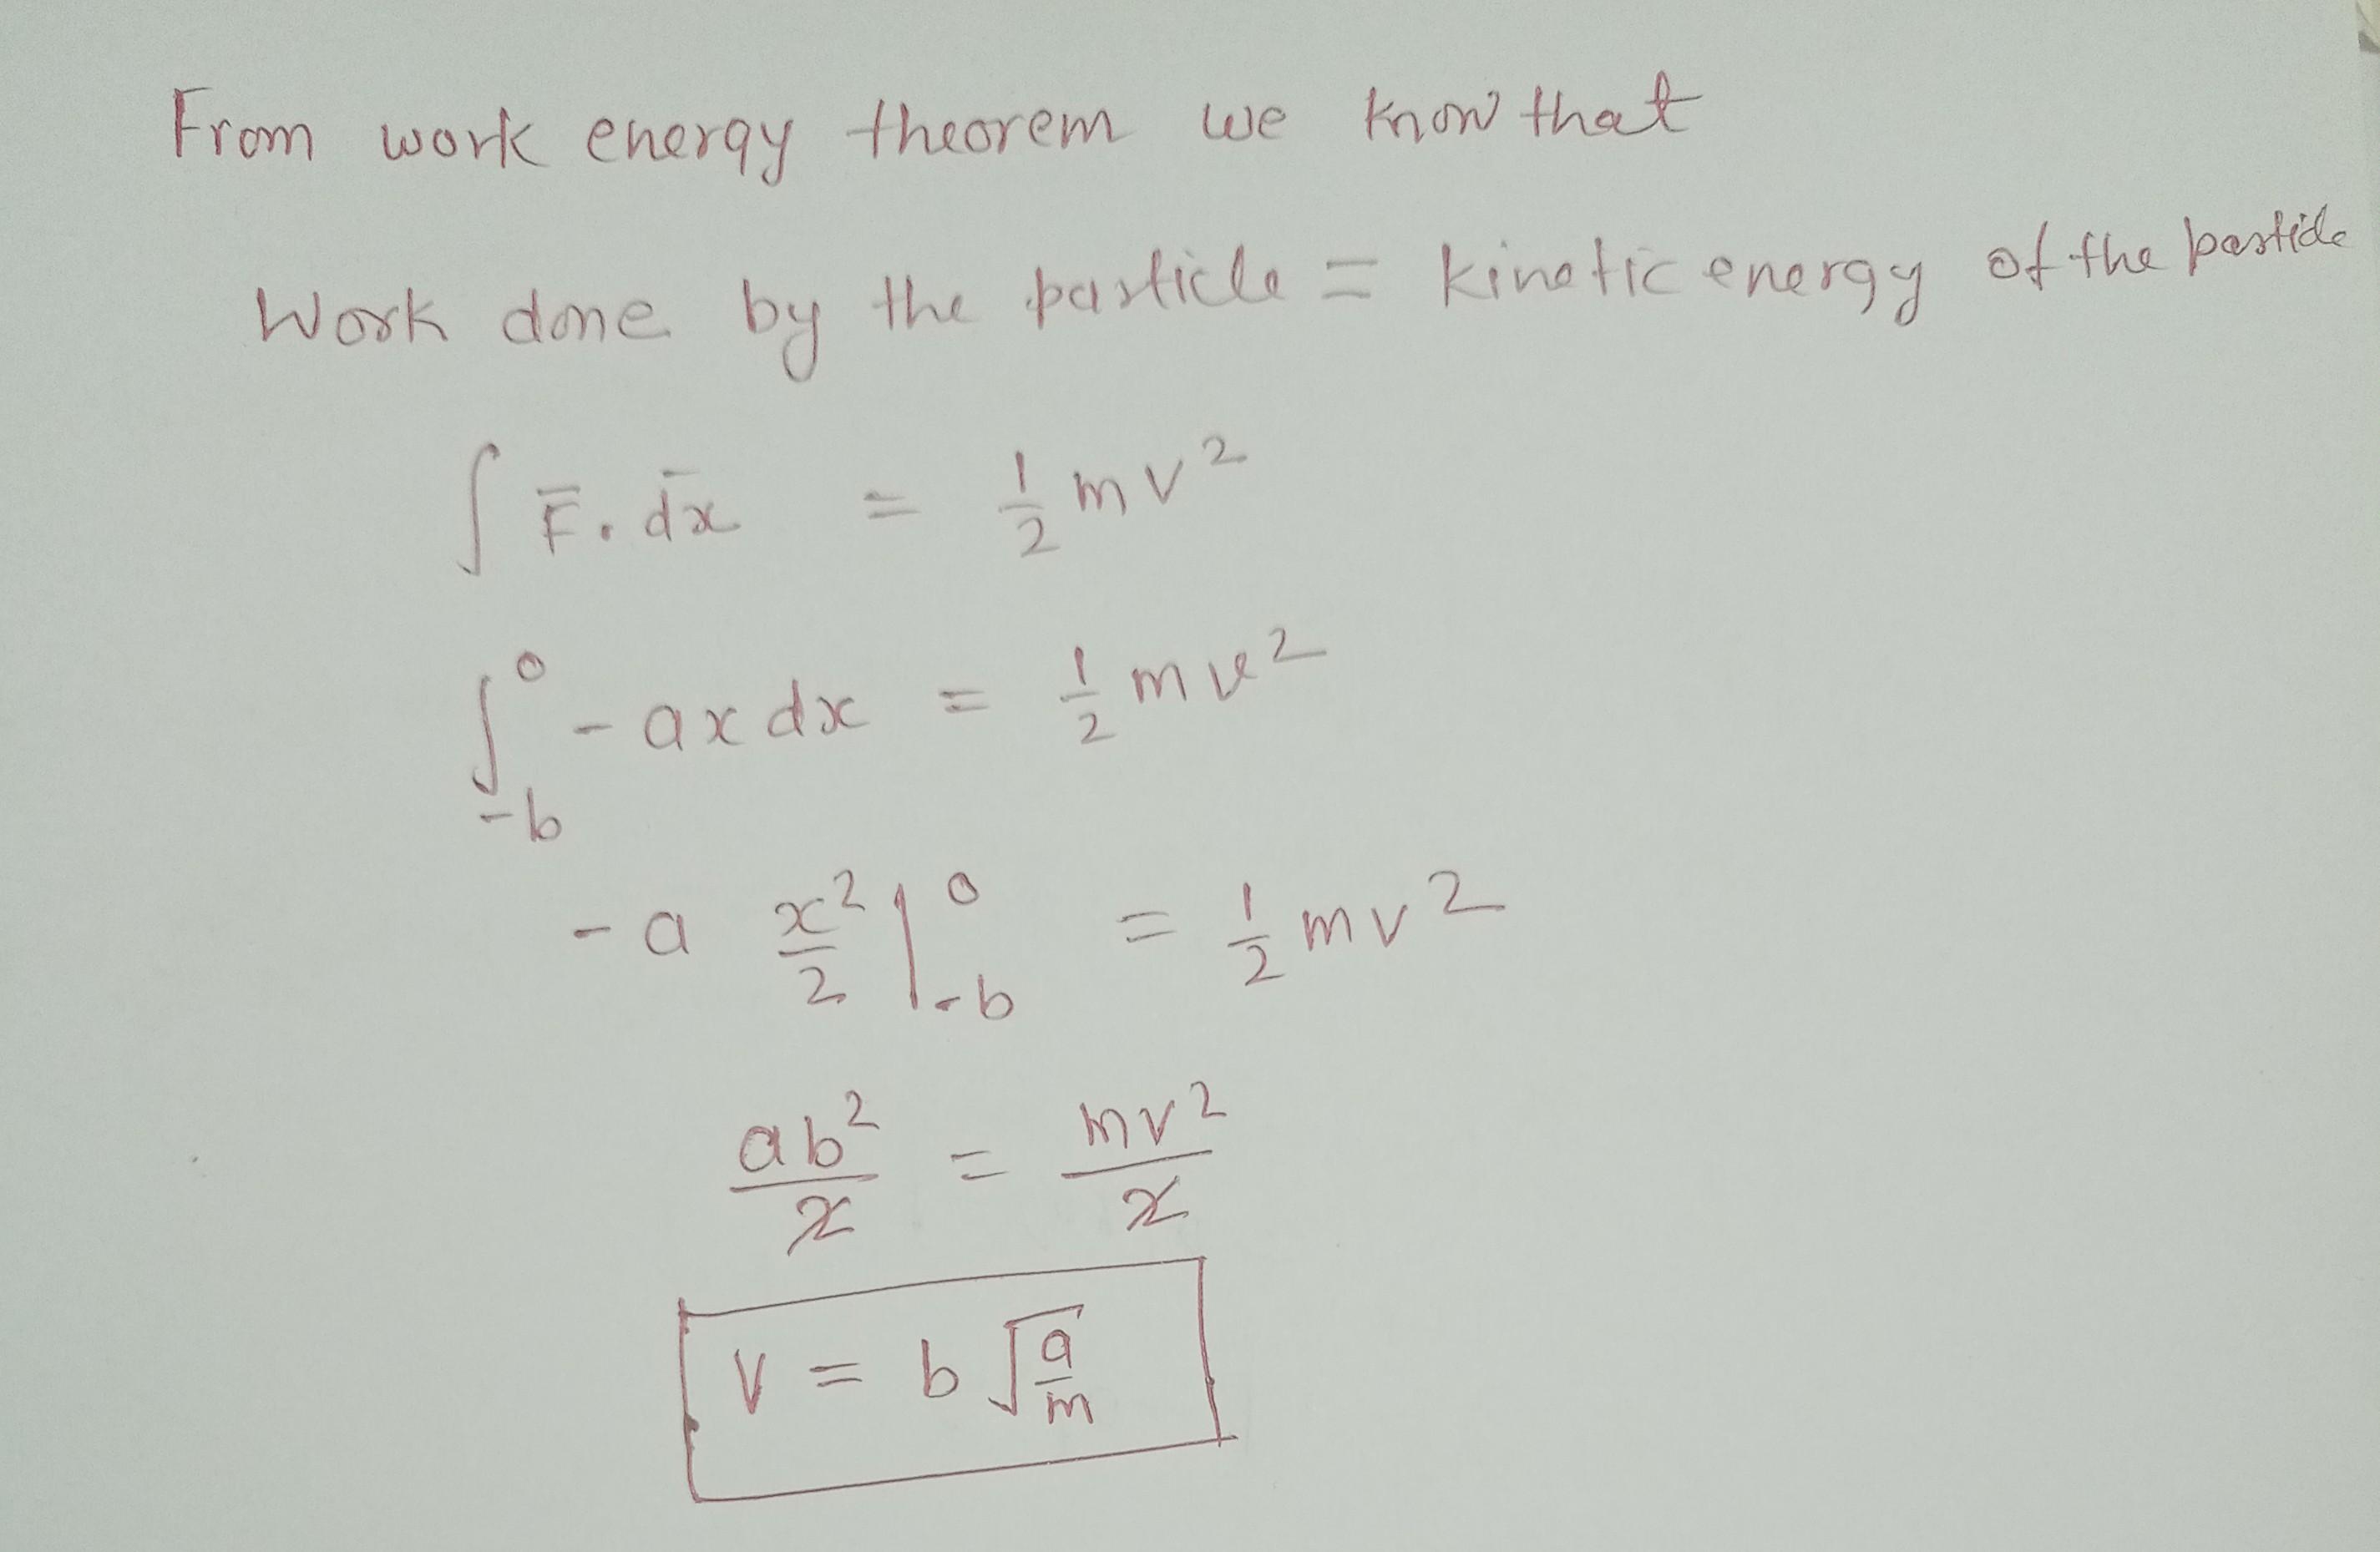 From work energy theorem we know that
Work done by the particle = kinetic energy of the particle
∫ F̅ . d̅x = 1/2 mv²
∫₋b⁰ - ax dx = 1/2 mv²
- a x²/2 |₋b⁰ = 1/2 mv²
ab²/2 = mv²/2
v = b √(a/m)